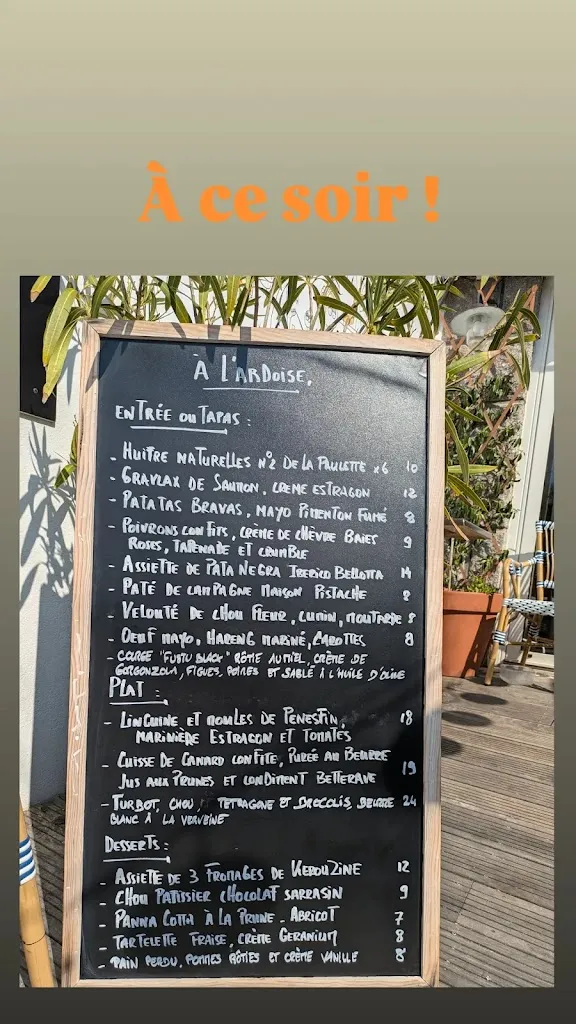 À ce soir !
À L'ARDOISE,
ENTRÉE OU TAPAS :
- HUITRE NATURELLES N°2 DE LA PAULETTE x6 10
- GRAVLAX DE SAUMON, CREME ESTRAGON 12
- PATATAS BRAVAS, MAYO PIMENTON FUMÉ 8
- POIVRONS CONFITS, CRÈME DE CHÈVRE BAIES 9
ROSES, TAPENADE ET CRUMBLE
- ASSIETTE DE PATA NEGRA IBERICO BELLOTTA 14
- PATÉ DE CAMPAGNE MAISON PISTACHE 8
- VELOUTÉ DE CHOU FLEUR, CUMIN, MOUTARDE 8
- OEUF MAYO, HARENG MARINÉ, CAROTTES 8
- COURGE "FUTSU BLACK" RÔTIE AU MIEL, CRÈME DE
GORGONZOLA, FIGUES, POIRES ET SABLÉ À L'HUILE D'OLIVE
PLAT :
- LINGUINE ET MOULES DE PENESTIN, 18
MARINIÈRE ESTRAGON ET TOMATES
- CUISSE DE CANARD CONFITE, PURÉE AU BEURRE 19
JUS AUX PRUNES ET CONDIMENT BETTERAVE
- TURBOT, CHOU, TETRAGONE ET BROCOLIS, BEURRE 24
BLANC À LA VERVEINE
DESSERTS :
- ASSIETTE DE 3 FROMAGES DE KEROUZINE 12
- CHOU PATISSIER CHOCOLAT SARRASIN 9
- PANNA COTTA À LA PRUNE - ABRICOT 7
- TARTELETTE FRAISE, CRÈME GERANIUM 8
- PAIN PERDU, POMMES RÔTIES ET CRÈME VANILLE 8